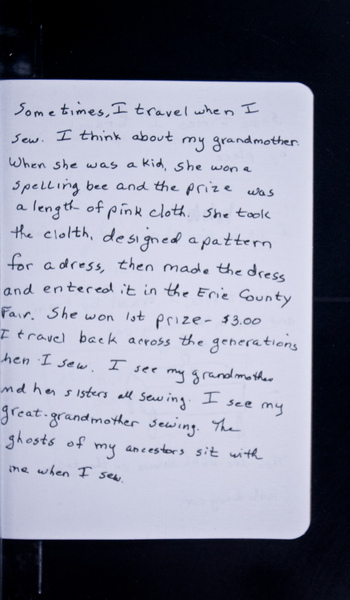 Sometimes, I travel when I
sew. I think about my grandmother.
When she was a kid, she won a
spelling bee and the prize was
a length of pink cloth. She took
the clolth, designed a pattern
for a dress, then made the dress
and entered it in the Erie County
Fair. She won 1st prize - $3.00
I travel back across the generations
hen I sew. I see my grandmother
nd her sisters all sewing. I see my
great-grandmother sewing. The
ghosts of my ancestors sit with
me when I sew.